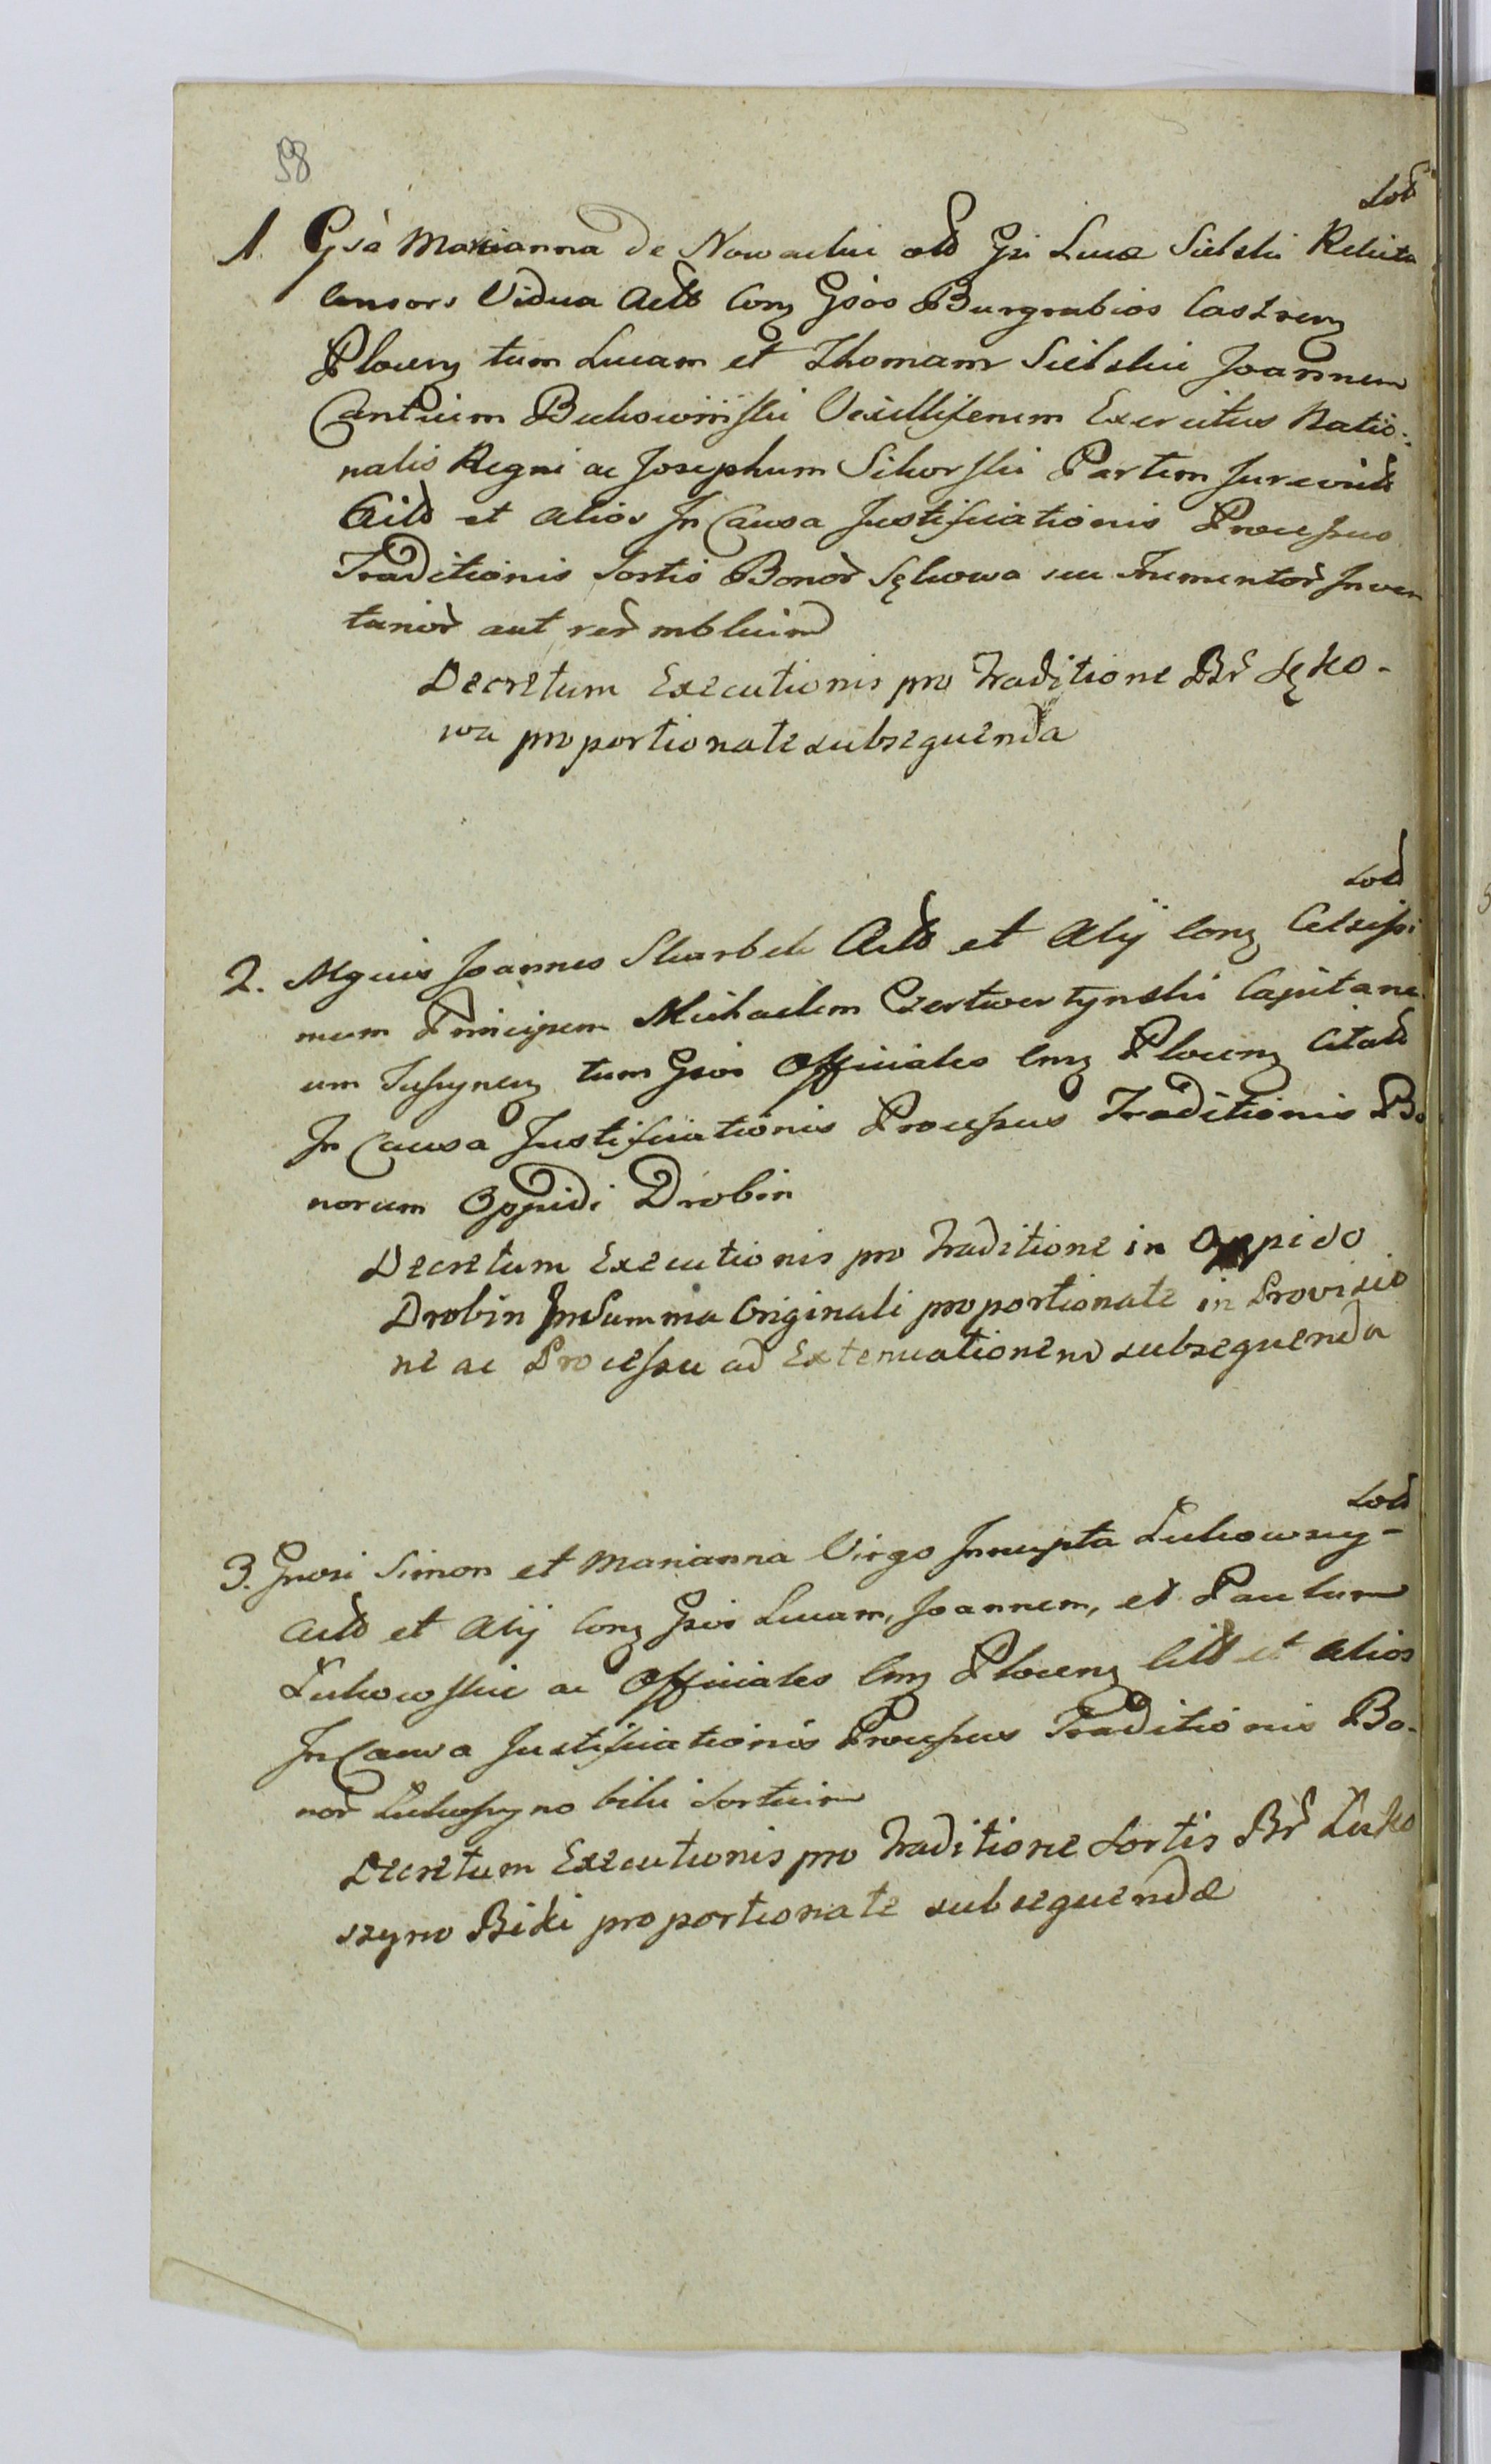 58
Sod
1. Gsa Marianna de Nowackie old Gsi Lucæ Sielski Relicta
Consors Vidua Actt Conz Gsos Burgrabios Castrenz
Plocenz tum Lucam et Thomam Sielskie Joannem
Cantium Bukowiński Vexilliferum Exercitus Natio:
nalis Regni ac Josephum Sikorski Partem Jurevictt
Citt et alios In Causa Justificationis Processus
Traditionis Sortis Bonor Sękowa seu Frumentor Inven
tarior aut rer mblium
Decretum Executionis pro Traditione Br Sęko-
wa proportionate subsequenda
Sod
2. Mgcus Joannes Skarbek Actt et Alÿ Conz Celsissi
mum Principem Michaelem Czertwertynski Capitane
um tum Gsos Officiales Cnz Plocenz Citatt
In Causa Justificationis Processus Traditionis Bo
norum Oppidi Drobin
Decretum Executionis pro Traditione in Oppido
Drobin In Summa Originali proportionate in Provisio
ne ac Processu ad Extenuationem subsequenda
Sod
3. Gnosi Simon et Marianna Virgo Innupta Łukowscy-
Actt et Alÿ Conz Gsos Lucam, Joannem, et Paulum
Łukowskie ac Officiales Cnz Plocenz Citt et alios
In Causa Justificationis Processus Traditionis Bo-
nor Łukoszyno biki Sortium
Decretum Executionis pro Traditione Sortis Br Łuko
szyno Biki proportionate subsequendæ